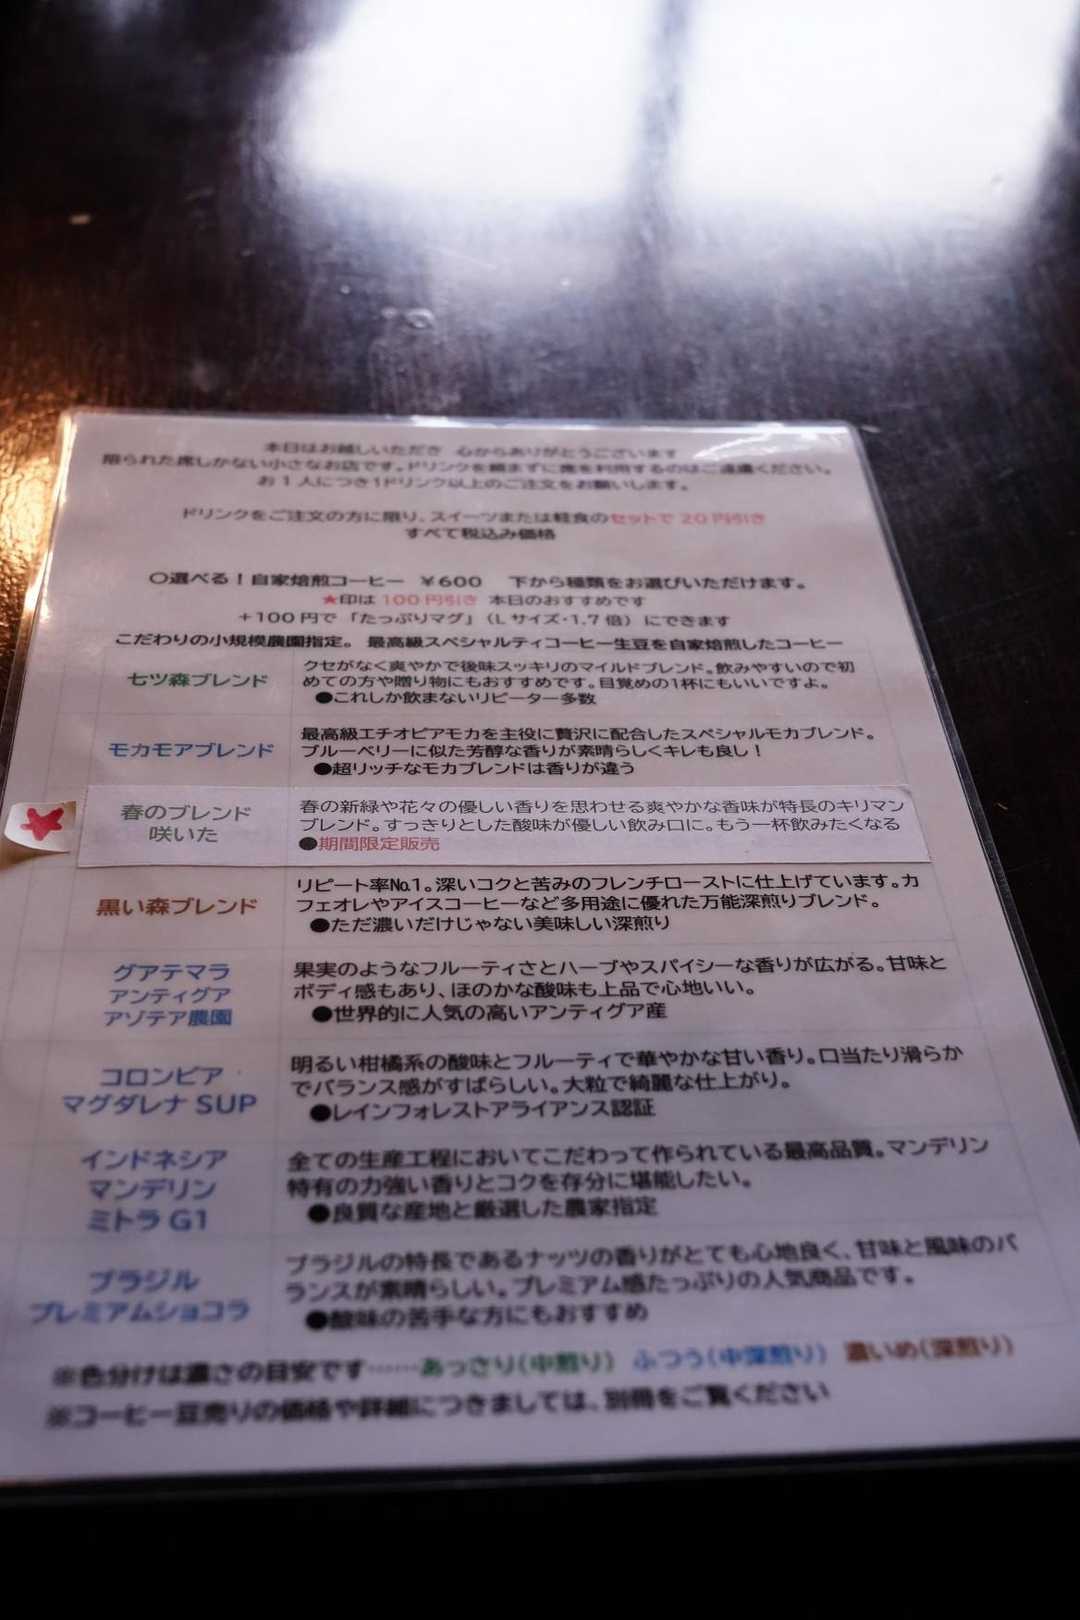 本日はお越しいただき 心からありがとうございます
限られた席しかない小さなお店です。ドリンクを頼まずに席を利用するのはご遠慮ください。
お1人につき1ドリンク以上のご注文をお願いします。
ドリンクをご注文の方に限り、スイーツまたは軽食のセットで20円引き
すべて税込み価格
○選べる！自家焙煎コーヒー ￥600 下から種類をお選びいただけます。
★印は100円引き 本日のおすすめです
＋100円で「たっぷりマグ」（Lサイズ・1.7倍）にできます
こだわりの小規模農園指定。 最高級スペシャルティコーヒー生豆を自家焙煎したコーヒー
七ツ森ブレンド
クセがなく爽やかで後味スッキリのマイルドブレンド。飲みやすいので初
めての方や贈り物にもおすすめです。目覚めの1杯にもいいですよ。
●これしか飲まないリピーター多数
モカモアブレンド
最高級エチオピアモカを主役に贅沢に配合したスペシャルモカブレンド。
ブルーベリーに似た芳醇な香りが素晴らしくキレも良し！
●超リッチなモカブレンドは香りが違う
春のブレンド
咲いた
春の新緑や花々の優しい香りを思わせる爽やかな香味が特長のキリマン
ブレンド。すっきりとした酸味が優しい飲み口に。もう一杯飲みたくなる
●期間限定販売
黒い森ブレンド
リピート率№1。深いコクと苦みのフレンチローストに仕上げています。カ
フェオレやアイスコーヒーなど多用途に優れた万能深煎りブレンド。
●ただ濃いだけじゃない美味しい深煎り
グアテマラ
アンティグア
アゾテア農園
果実のようなフルーティさとハーブやスパイシーな香りが広がる。甘味と
ボディ感もあり、ほのかな酸味も上品で心地いい。
●世界的に人気の高いアンティグア産
コロンビア
マグダレナ SUP
明るい柑橘系の酸味とフルーティで華やかな甘い香り。口当たり滑らか
でバランス感がすばらしい。大粒で綺麗な仕上がり。
●レインフォレストアライアンス認証
インドネシア
マンデリン
ミトラ G1
全ての生産工程においてこだわって作られている最高品質。マンデリン
特有の力強い香りとコクを存分に堪能したい。
●良質な産地と厳選した農家指定
ブラジル
プレミアムショコラ
ブラジルの特長であるナッツの香りがとても心地良く、甘味と風味のバ
ランスが素晴らしい。プレミアム感たっぷりの人気商品です。
●酸味の苦手な方にもおすすめ
※色分けは濃さの目安です……あっさり（中煎り） ふつう（中深煎り） 濃いめ（深煎り）
※コーヒー豆売りの価格や詳細につきましては、別冊をご覧ください